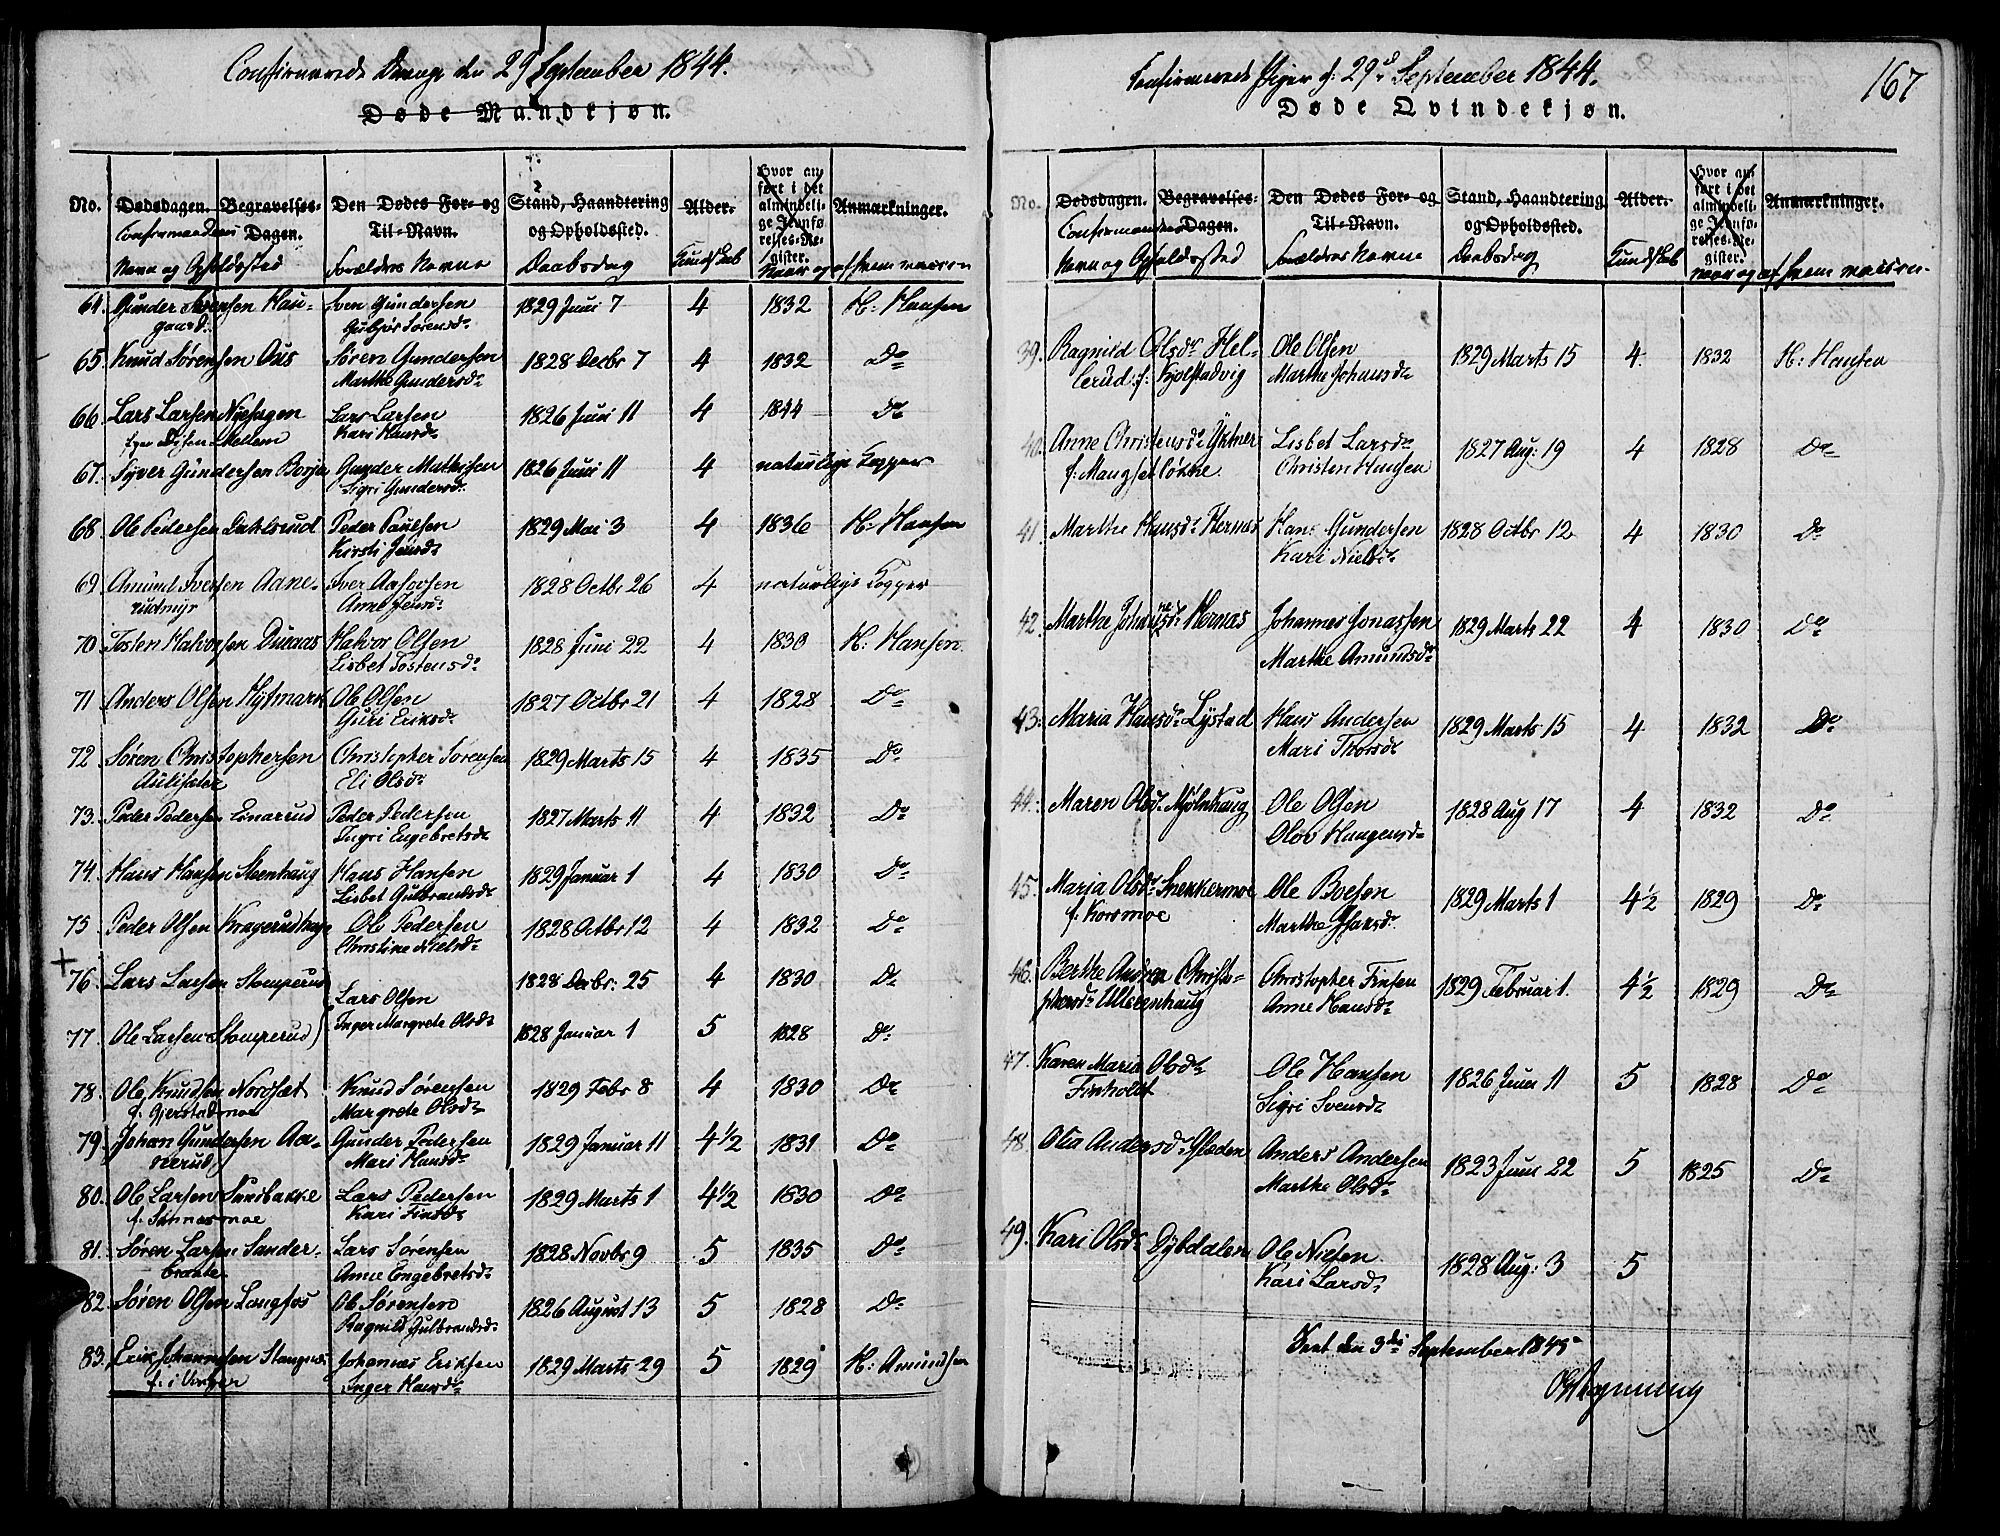 Confirmerede Drenge den 29 September 1844.
Døde Mandkjøn.
No. Dødsdagen. Begravelses-Dagen. Den Dødes For- og Til-Navn. Stand, Haandtering og Opholdssted. Alder. Hvor anført i det almindelige Jevnførelses-Register. Anmærkninger.
Confirmandens Navn og Opholdssted Forældres Navne Daabsdag Kundskab Naar og af hvem vaccin
64. Gunder Svensen Haugaard. Sven Gundersen Gubjør Sørensd. 1829 Juni 7 4 1832 H: Hansen
65. Knud Sørensen Aus Søren Gundersen Marthe Gundersd. 1828 Decbr 7 4 1832 Do
66. Lars Larsen Nyhagen Mellem Lars Larsen Kari Hansd. 1826 Juni 11 4 1844 Do
67. Syver Gundersen Borje Gunder Mathisen Sigri Gundersd. 1826 Juni 11 4 naturlige Kopper
68. Ole Pedersen Dahlsrud Peder Paulsen Kirsti Jensd. 1829 Mai 3 4 1836 H: Hansen
69 Amund Iversen Aanerudmyr Iver Anne Jensd. 1828 Octbr 26 4 naturlige Kopper
70 Tosten Halvorsen Halvor Olsen Lisbet Tostensd. 1828 Juni 22 4 1830 H: Hansen.
71 Anders Olsen Nytmark Ole Olsen Guri Eriksd. 1827 Octbr 21 4 1828 Do
72 Søren Christophersen Aulisæter Christopher Sørensen Eli Olsd. 1829 Marts 15 4 1835 Do
73. Peder Pedersen Linarud Peder Pedersen Ingri Engebretsd. 1827 Marts 11 4 1832 Do
74. Hans Hansen Steenhaug Hans Hansen Lisbet Gulbrandsd. 1829 Januar 1 4 1830 Do
75 Peder Olsen Kragerudhage Ole Pedersen Christine Nielsd. 1828 Octbr 12 4 1832 Do
76. Lars Larsen Stomperud 1828 Decbr: 25 4 1830 Do
Lars Olsen Inger Margrete Olsd.
77. Ole Larsen Stomperud 1828 Januar 1 5 1828 Do
78. Ole Knudsen Nordsæt f. Gjerstadmoe Knud Sørensen Margrete Olsd. 1829 Febr 8 4 1830 Do
79. Johan Gundersen Aanerud Gunder Pedersen Mari Hansd. 1829 Januar 11 4½ 1831 Do
80. Ole Larsen Sandbakke f. Sønnæsmoe Lars Pedersen Kari Finsd. 1829 Marts 1 4½ 1830 Do
81. Søren Larsen Sanderbraate. Lars Sørensen Anne Engebretsd. 1828 Novbr 9 5 1835 Do
82. Søren Olsen Langfos Ole Sørensen Ragnild Gulbrandsd. 1826 August 13 5 1828 Do
83. Erik Johannesen Stangnes f. i Vinger Johannes Eriksen Inger Hansd. 1829 Marts 29 5 1829 H: Amundsen
Confirmerede Piger d: 29d September 1844.
167
Døde Qvindekjøn.
No. Dødsdagen. Begravelses-Dagen. Den Dødes For- og Til-Navn. Stand, Haandtering og Opholdssted. Alder. Hvor anført i det almindelige Jevnførelses-Register. Anmærkninger.
Confirmandens Navn og Opholdssted Forældres Navne Daabsdag Kundskab naar og af hvem vaccin.
39. Ragnild Olsdr Hellerud f: Kjolstadvig Ole Olsen Marthe Johansd. 1829 Marts 15 4. 1832 H: Hansen
40. Anne Christensd. f: Mangset løkke Lisbet Larsd. Christen Hansen 1827 Aug: 19 4 1828 Do
41 Marthe Hansd. Hernes Hans Gundersen Kari Nielsd. 1828 Octbr 12 4 1830 Do
42. Marthe Johannesd. Hernæs Johannes Jonassen Marthe Amundsd. 1829 Marts 22 4 1830 Do
43. Maria Hansd. Lystad Hans Andersen Mari Thorsd. 1829 Marts 15 4 1832 Do
44. Maren Olsd. Mjølnhaug Ole Olsen Olov Haagensd. 1828 Aug 17 4 1832 Do
45. Maria Olsd. Snekkermoe f. Korsmoe Ole Boesen Marthe 1829 Marts 1 4½ 1829 Do
46. Berthe Andrea Christophersd. Ullerenhaug Christopher Finsen Anne Hansd. 1829 Februar 1. 4½ 1829 Do
47. Karen Maria Olsd. Finholdt Ole Hansen Sigri Svensd. 1826 Juni 11 5 1828 Do
48. Olia Andersd. Glæden Anders Andersen Marthe Olsd. 1823 Juni 22 5 1825 Do
49. Kari Olsd. Dybdalen Ole Nielsen Kari Larsd. 1828 Aug: 3 5
den 3die September 1845